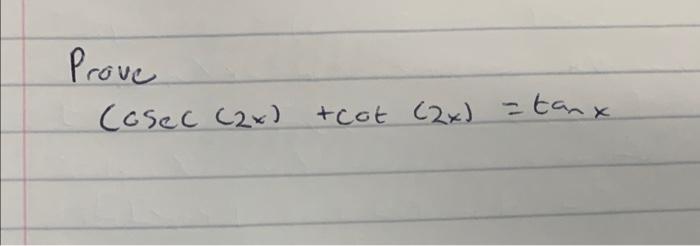 Prove
Cosec (2x) + cot (2x) = tan x